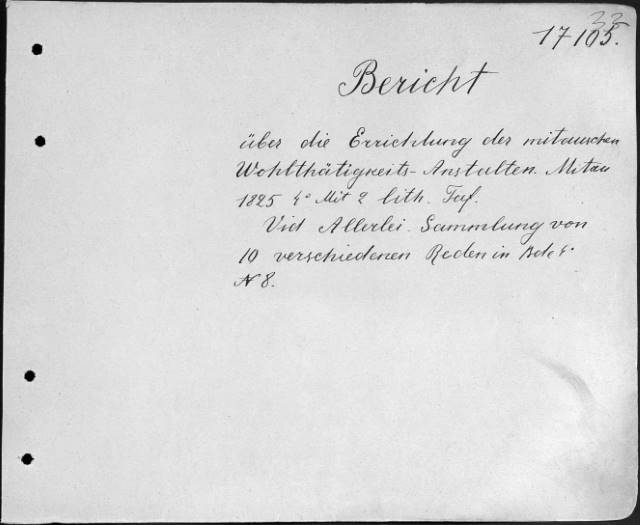 33
17105.
Bericht
über die Errichtung der mitauschen
Wohlthätigkeits-Anstalten. Mitau
1825 4° Mit 2 lith. Taf.
Vid Allerlei. Sammlung von
10 verschiedenen Reden in
N 8.